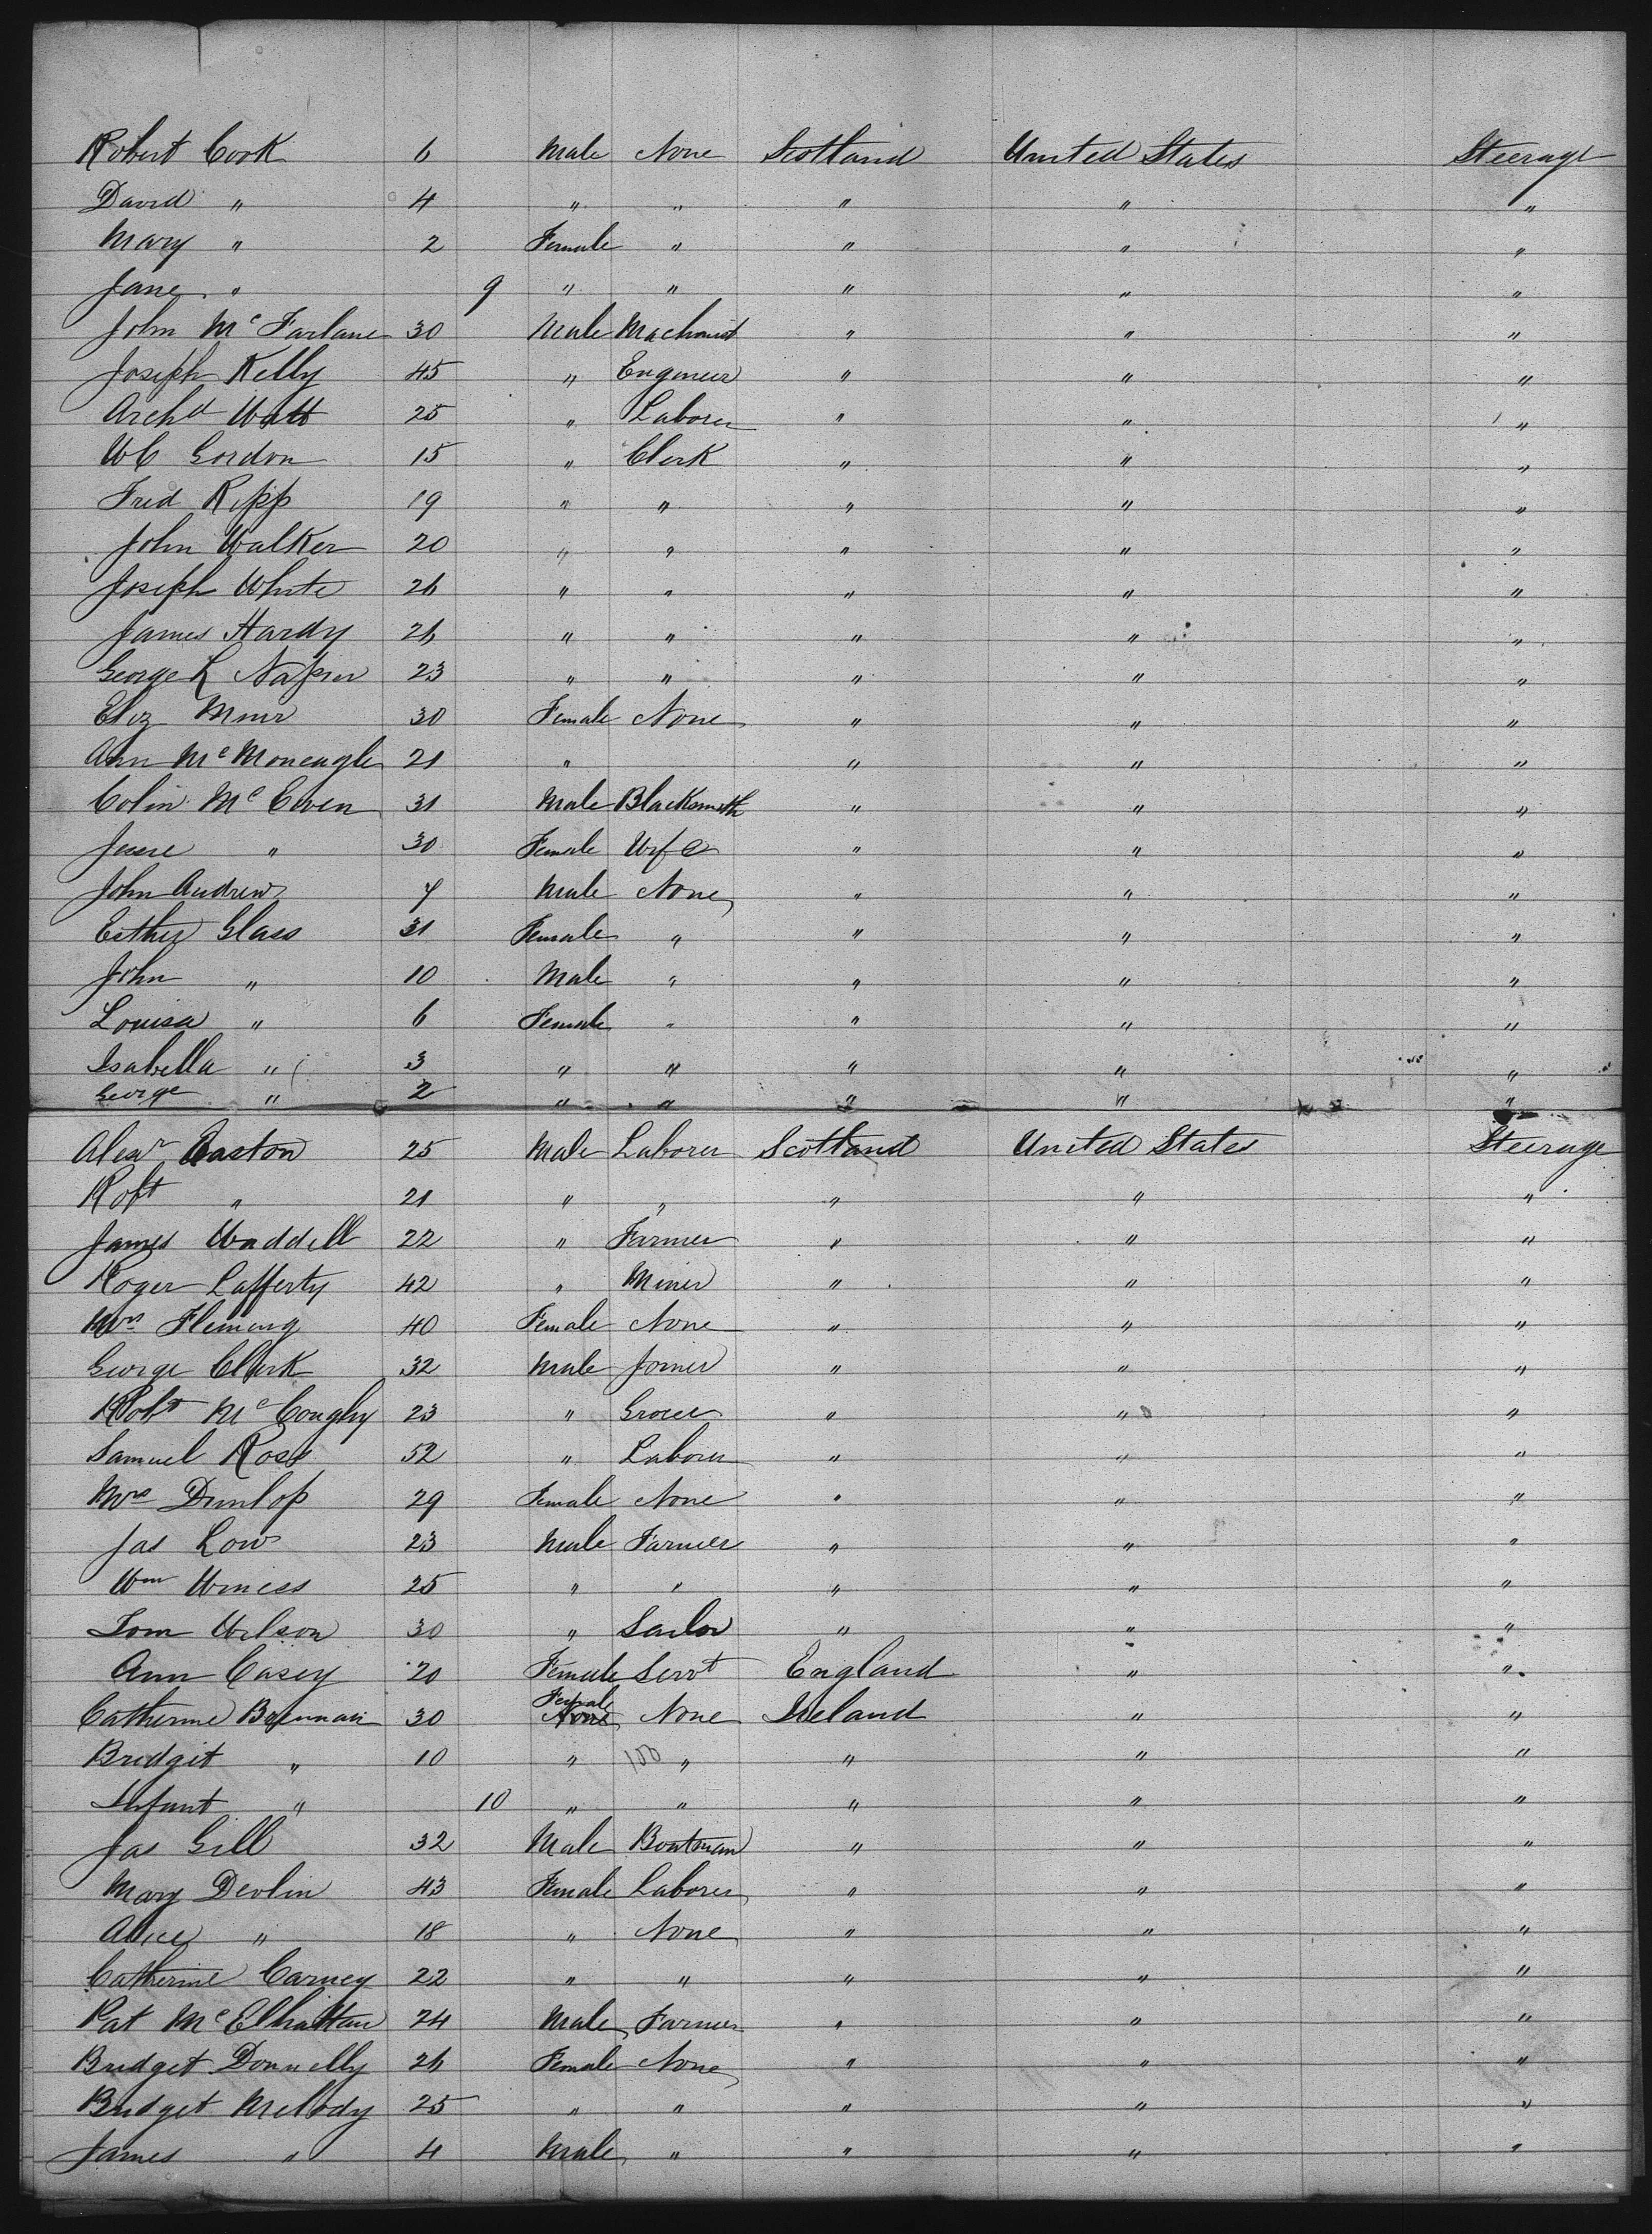 Robert Cook 6 Male None Scotland United States Steerage
David " 4 " " " " "
Mary " 2 Female " " " "
Jane " 9 " " " " "
John McFarlane 30 Male Machinist " " "
Joseph Kelly 45 " Engineer " " "
Archd Watt 25 " Laborer " " "
WC Gordon 15 " Clerk " " "
Fred Kipp 19 " " " " "
John Walker 20 " " " " "
Joseph White 26 " " " " "
James Hardy 26 " " " " "
George L Napier 23 " " " " "
Eliz Muir 30 Female None " " "
Ann McMoneagle 21 " " " "
Colin McEwen 31 Male Blacksmith " " "
Jessie " 30 Female Wife " " "
John Andrew 7 Male None " " "
Esther Glass 31 Female " " " "
John " 10 Male " " " "
Louisa " 6 Female " " " "
Isabella " 3 " " " " "
George " 2 " " " " "
Alexr Easton 25 Male Laborer Scotland United States Steerage
Robt " 21 " " " " "
James Waddell 22 " Farmer " " "
Roger Lafferty 42 " Miner " " "
Mrs Fleming 40 Female None " " "
George Clerk 32 Male Joiner " " "
Robt McCoughy 23 " Grocer " " "
Samuel Ross 52 " Laborer " " "
Mrs Dunlop 29 Female None " " "
Jas Low 23 Male Farmer " " "
Wm 25 " " " " "
Tom Wilson 30 " Sailor " " "
Ann Casey 20 Female Servt England " "
Catherine Brennan 30 Female None None Ireland " "
Bridget " 10 " 100 " " " "
Infant " 10 " " " " "
Jas Gill 32 Male Boatman " " "
Mary Devlin 43 Female Laborer " " "
Alice " 18 " None " " "
Catherine Carney 22 " " " " "
Pat McElhattan 24 Male Farmer " " "
Bridget Donnelly 26 Female None " " "
Bridget Melody 25 " " " " "
James " 4 Male " " " "